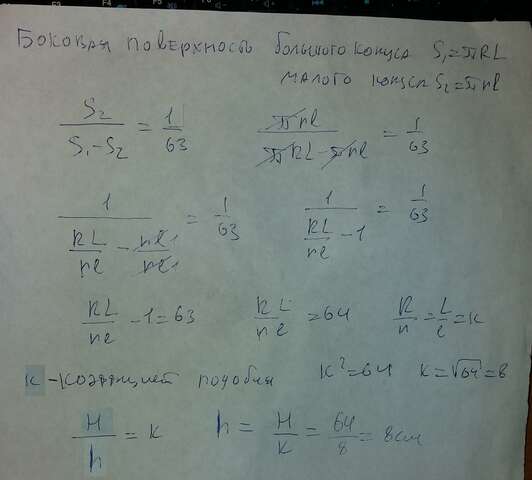 Боковая поверхность большого конуса S₁=πRL
малого конуса S₂=πrl
S₂/(S₁-S₂) = 1/63    πrl/(πRL-πrl) = 1/63
1/(RL/rl - rl·1/rl·1) = 1/63    1/(RL/rl - 1) = 1/63
RL/rl - 1 = 63    RL/rl = 64    R/r = L/l = k
k - коэффициет подобия    k² = 64    k = √64 = 8
H/h = k    h = H/k = 64/8 = 8см